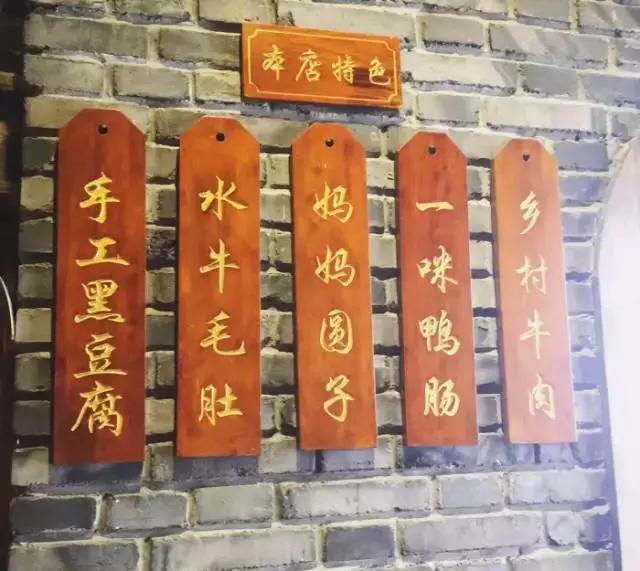 本店特色
手工黑豆腐
水牛毛肚
妈妈圆子
一咪鸭肠
乡村牛肉